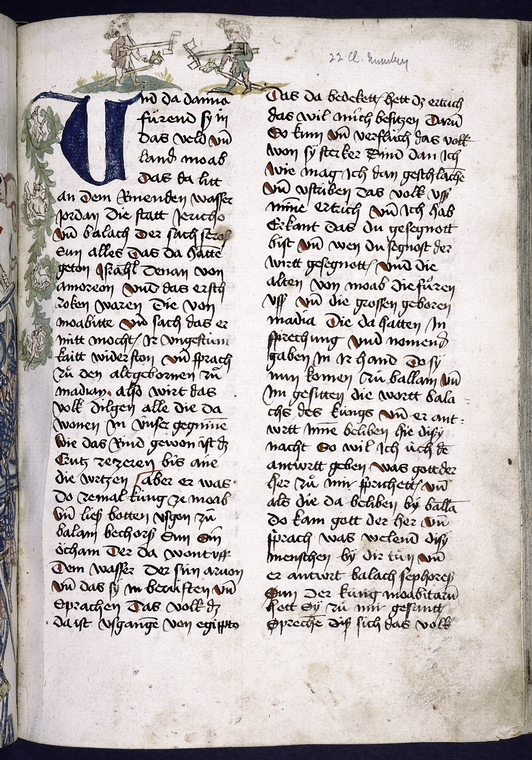 22 Cl. Numbry
Und da danna
fürend sy in
das veld vn̄
land moab
Das da litt
an dem Ruenden wasser
jordan die statt Jericho
vn̄ balach der sach sephor
Sun alles das da hatte
geton Israhel denan von
amoreon vnd das ersch
roken waren die von
moabitte vn̄ sach das er
nitt mocht Ir vngestüm
kaitt widerston vn̄ sprach
zu den altgebornen zu
madian also wirt das
volk dilgen alle die da
wonen in vnser gegnine
wie das Rind gewon ist dz
Crutz zezeren bis ane
die wrtzen aber er was
do zemal küng ze moab
vn̄ ließ botten vßgon zu
balam bechors Sun ein
der da wont vff
dem wasser der sün amon
vn̄ das sy in berüften vn̄
Sprachen das volk dz
da ist vßgange von egippto
das da bedekett hett dz ertrich
das wil mich besitzen darū
So kum vn̄ verflüch das volk
won sy sterker sind dan ich
wie mag ich dan geschlache
vn̄ vstriben das volk vss
mine ertrich vn̄ ich hab
Erkant das du gesegnott
bist vn̄ wen du segnost der
wirtt gesegnott vnd die
alten von moab die füren
vss vn̄ die grossen geboren
madia die da hatten in
sprechung vnd nemend
gaben in Ir hand do sy
nun komen zu ballam vn̄
Im geseitten die wortt bala
chs des küngs vn̄ er ant-
wrtt inne beliben hie disy
nacht So wil ich üch de
antwrtt geben was gott der
her zu mir sprichett vn̄
als die da beliben by balla
do kam gott der her vn̄
sprach was welend disy
menschen by dir tün vn̄
er antwrt balach sephores
Sun der küng moabitarū
hett Sy zu mir gesantt
Spreche diß sich das volk